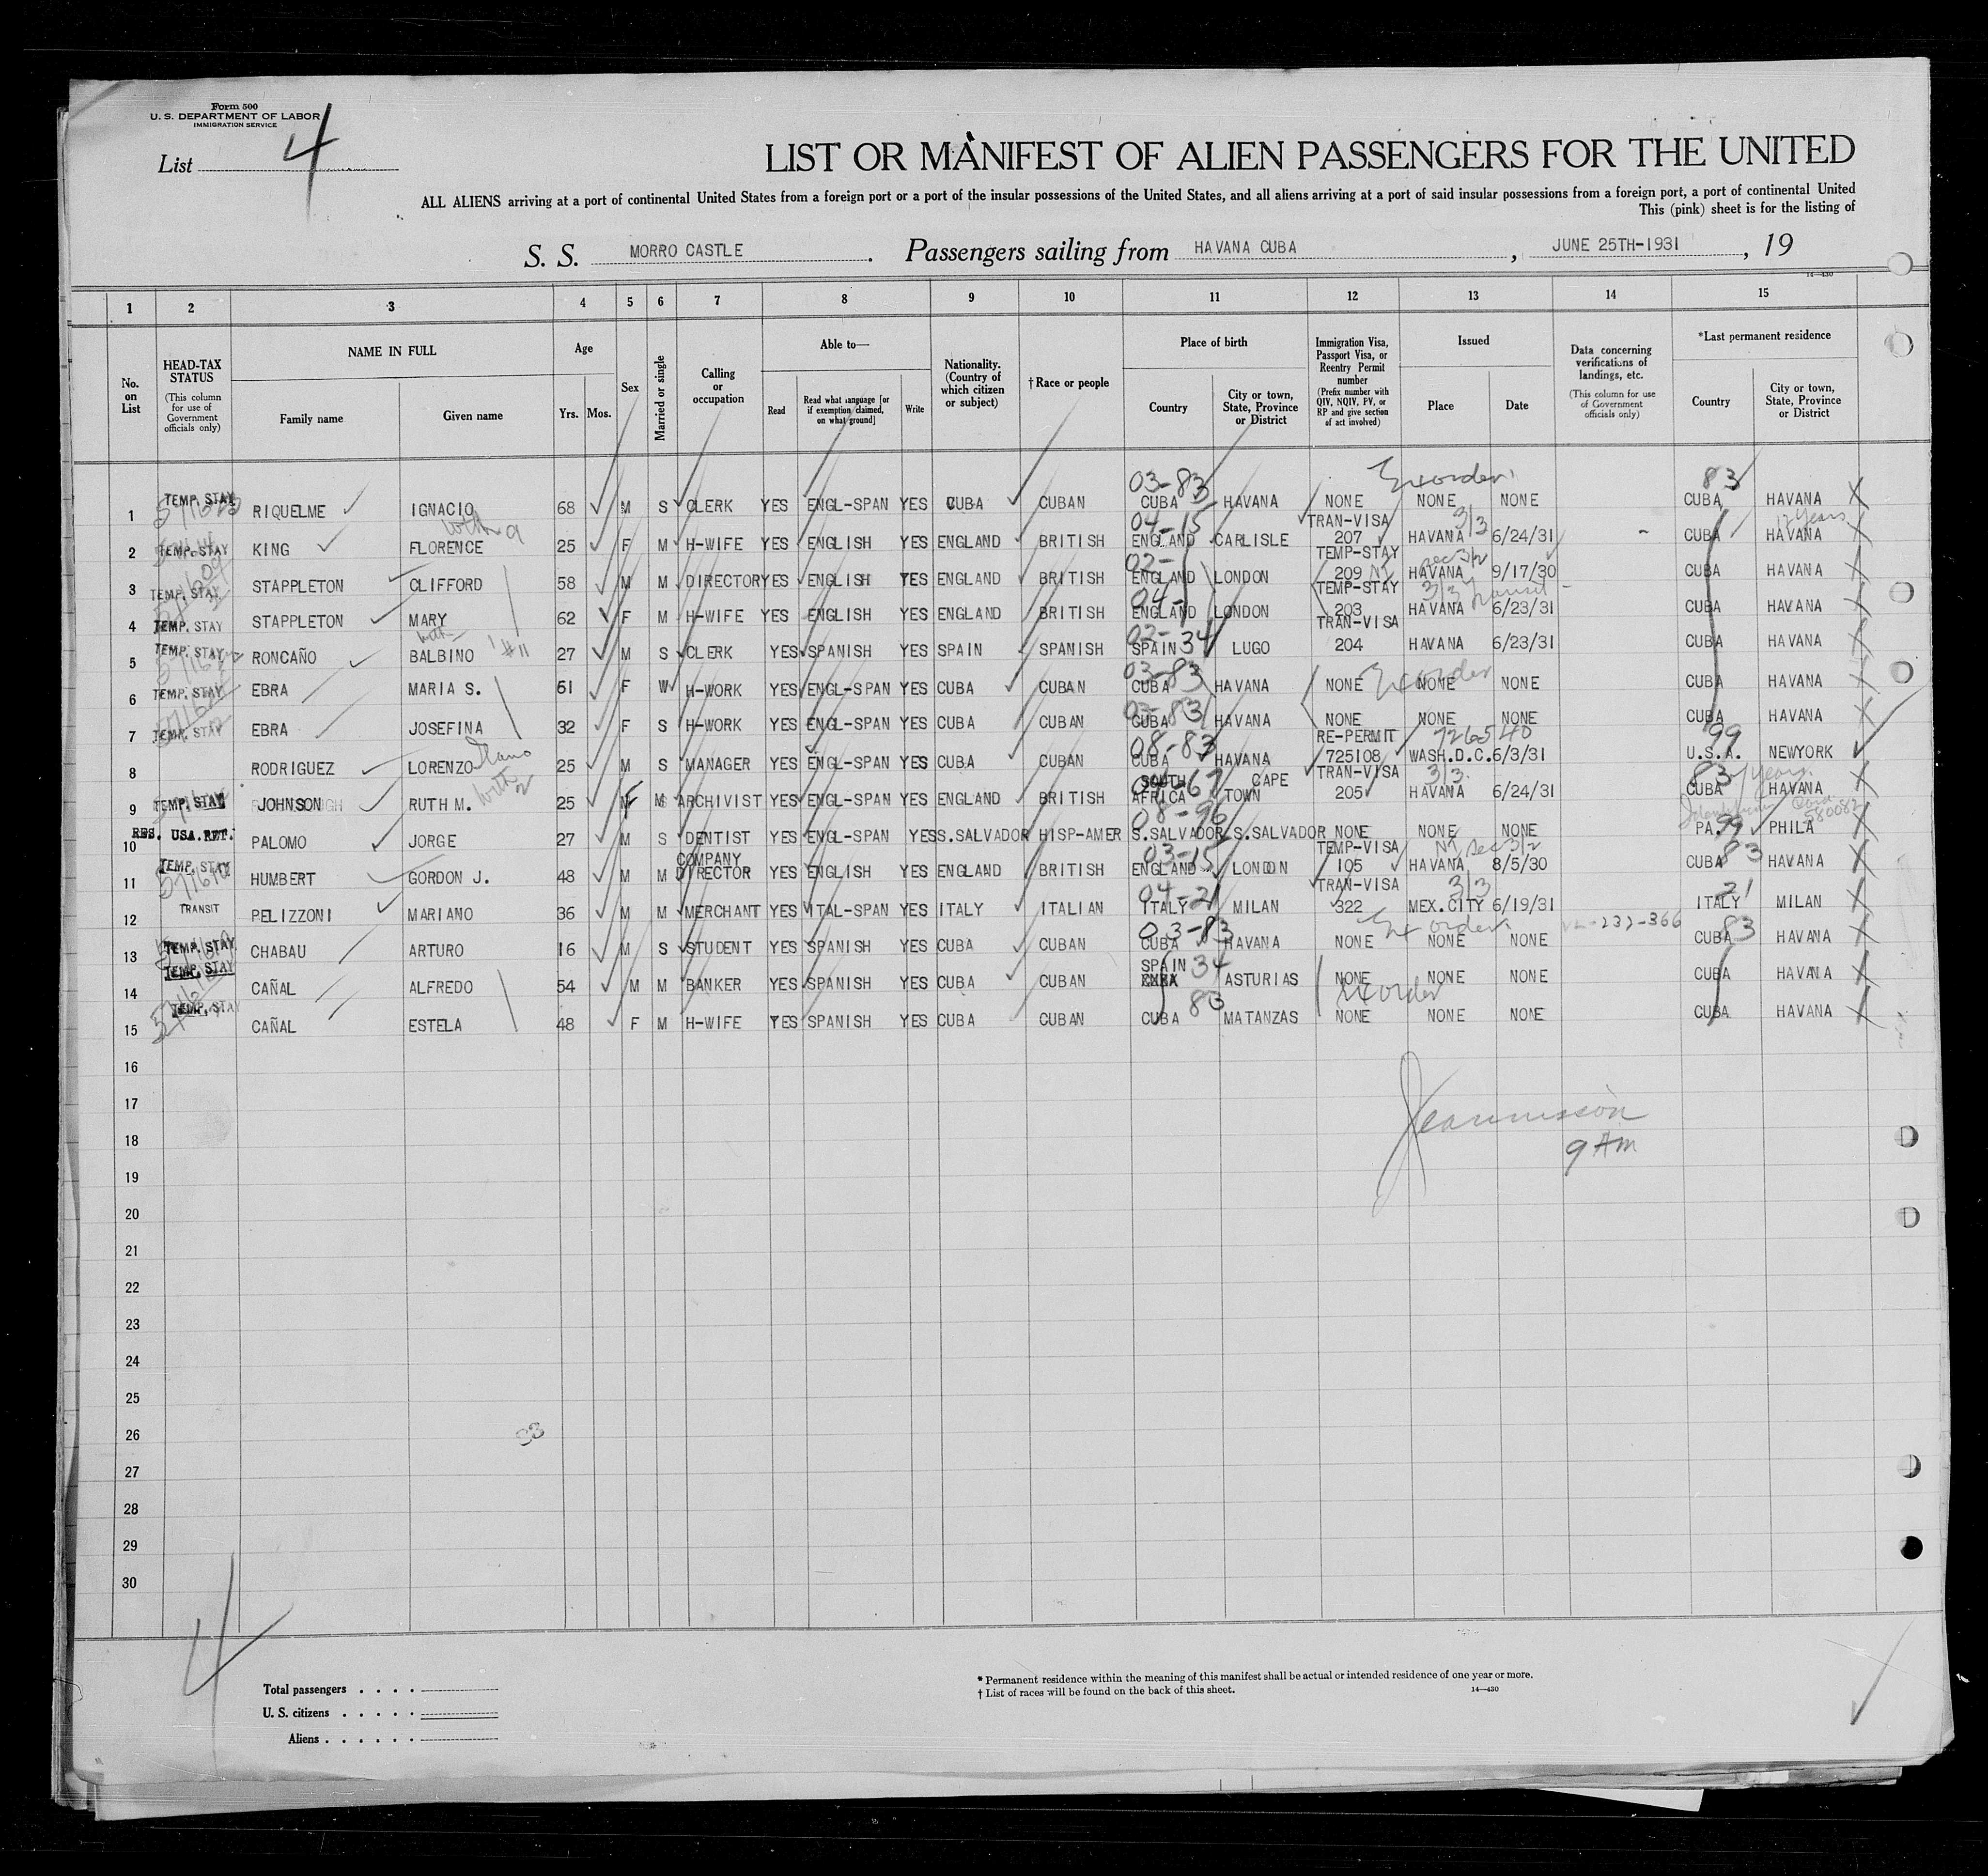 Form 500
U. S. DEPARTMENT OF LABOR
IMMIGRATION SERVICE
List 4
LIST OR MANIFEST OF ALIEN PASSENGERS FOR THE UNITED
ALL ALIENS arriving at a port of continental United States from a foreign port or a port of the insular possessions of the United States, and all aliens arriving at a port of said insular possessions from a foreign port, a port of continental United
This (pink) sheet is for the listing of
S. S. MORRO CASTLE. Passengers sailing from HAVANA CUBA, JUNE 25TH-1931, 19
14—430
1 2 3 4 5 6 7 8 9 10 11 12 13 14 15
No. on List
HEAD-TAX STATUS (This column for use of Government officials only)
NAME IN FULL Family name Given name
Age Yrs. Mos.
Sex
Married or single
Calling or occupation
Able to— Read Read what language [or if exemption claimed, on what ground] Write
Nationality. (Country of which citizen or subject)
†Race or people
Place of birth Country City or town, State, Province or District
Immigration Visa, Passport Visa, or Reentry Permit number (Prefix number with QIV, NQIV, PV, or RP and give section of act involved)
Issued Place Date
Data concerning verifications of landings, etc. (This column for use of Government officials only)
*Last permanent residence Country City or town, State, Province or District
03-83 Ex order 83
1 TEMP. STAY RIQUELME IGNACIO 68 M S CLERK YES ENGL-SPAN YES CUBA CUBAN CUBA HAVANA NONE NONE NONE CUBA HAVANA
with 9 04-15 TRAN-VISA 3/3 years
2 TEMP. STAY KING FLORENCE 25 F M H-WIFE YES ENGLISH YES ENGLAND BRITISH ENGLAND CARLISLE 207 HAVANA 6/24/31 CUBA HAVANA
02- TEMP-STAY sec 3/2
3 TEMP. STAY STAPPLETON CLIFFORD 58 M M DIRECTOR YES ENGLISH YES ENGLAND BRITISH ENGLAND LONDON 209 HAVANA 9/17/30 CUBA HAVANA
04- TEMP-STAY 3/3 transit
4 TEMP. STAY STAPPLETON MARY 62 F M H-WIFE YES ENGLISH YES ENGLAND BRITISH ENGLAND LONDON 203 HAVANA 6/23/31 CUBA HAVANA
with #11 02- 34 TRAN-VISA
5 TEMP. STAY RONCAÑO BALBINO 27 M S CLERK YES SPANISH YES SPAIN SPANISH SPAIN LUGO 204 HAVANA 6/23/31 CUBA HAVANA
03-83 Ex order
6 TEMP. STAY EBRA MARIA S. 61 F W H-WORK YES ENGL-SPAN YES CUBA CUBAN CUBA HAVANA NONE NONE NONE CUBA HAVANA
03-83
7 TEMP. STAY EBRA JOSEFINA 32 F S H-WORK YES ENGL-SPAN YES CUBA CUBAN CUBA HAVANA NONE NONE NONE CUBA HAVANA
08-83 RE-PERMIT 726540 99
8 RODRIGUEZ LORENZO 25 M S MANAGER YES ENGL-SPAN YES CUBA CUBAN CUBA HAVANA 725108 WASH.D.C. 6/3/31 U.S.A. NEWYORK
with 2 67 TRAN-VISA 3/3 83 years
9 TEMP. STAY JOHNSON RUTH M. 25 F M ARCHIVIST YES ENGL-SPAN YES ENGLAND BRITISH SOUTH AFRICA CAPE TOWN 205 HAVANA 6/24/31 CUBA HAVANA
08-96 Card 580082
10 RES. USA. RET. PALOMO JORGE 27 M S DENTIST YES ENGL-SPAN YES S.SALVADOR HISP-AMER S.SALVADOR S.SALVADOR NONE NONE NONE PA. 99 PHILA
03-15 TEMP-VISA sec 3/2 83
11 TEMP. STAY HUMBERT GORDON J. 48 M M COMPANY DIRECTOR YES ENGLISH YES ENGLAND BRITISH ENGLAND LONDON 105 HAVANA 8/5/30 CUBA HAVANA
04-21 TRAN-VISA 3/3 21
12 TRANSIT PELIZZONI MARIANO 36 M M MERCHANT YES ITAL-SPAN YES ITALY ITALIAN ITALY MILAN 322 MEX.CITY 6/19/31 ITALY MILAN
03-83 Ex order 83
13 TEMP. STAY CHABAU ARTURO 16 M S STUDENT YES SPANISH YES CUBA CUBAN CUBA HAVANA NONE NONE NONE CUBA HAVANA
34
14 TEMP. STAY CAÑAL ALFREDO 54 M M BANKER YES SPANISH YES CUBA CUBAN SPAIN ASTURIAS NONE NONE NONE CUBA HAVANA
83 Ex order
15 TEMP. STAY CAÑAL ESTELA 48 F M H-WIFE YES SPANISH YES CUBA CUBAN CUBA MATANZAS NONE NONE NONE CUBA HAVANA
16
17
18
9 AM
19
20
21
22
23
24
25
26
33
27
28
29
30
4
Total passengers
U. S. citizens
Aliens
* Permanent residence within the meaning of this manifest shall be actual or intended residence of one year or more.
† List of races will be found on the back of this sheet.
14—430